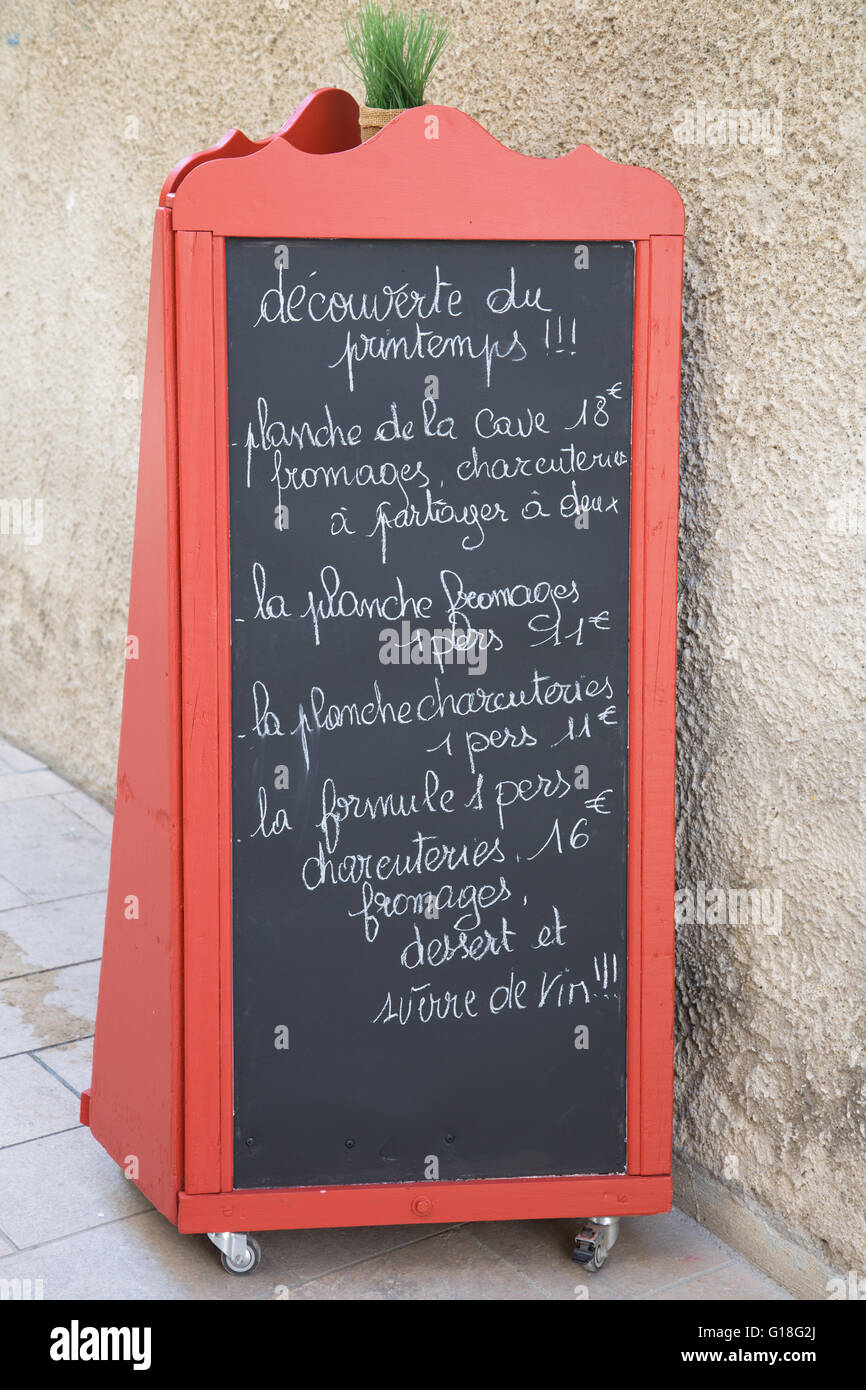 découverte du
printemps !!!
- planche de la cave 18€
fromages, charcuteries
à partager à deux
- la planche fromages
1 pers 11€
- la planche charcuteries
1 pers 11€
- la formule 1 pers
charcuteries, 16€
fromages,
dessert et
1 verre de vin!!!
alamy
Image ID: G18G2J
www.alamy.com